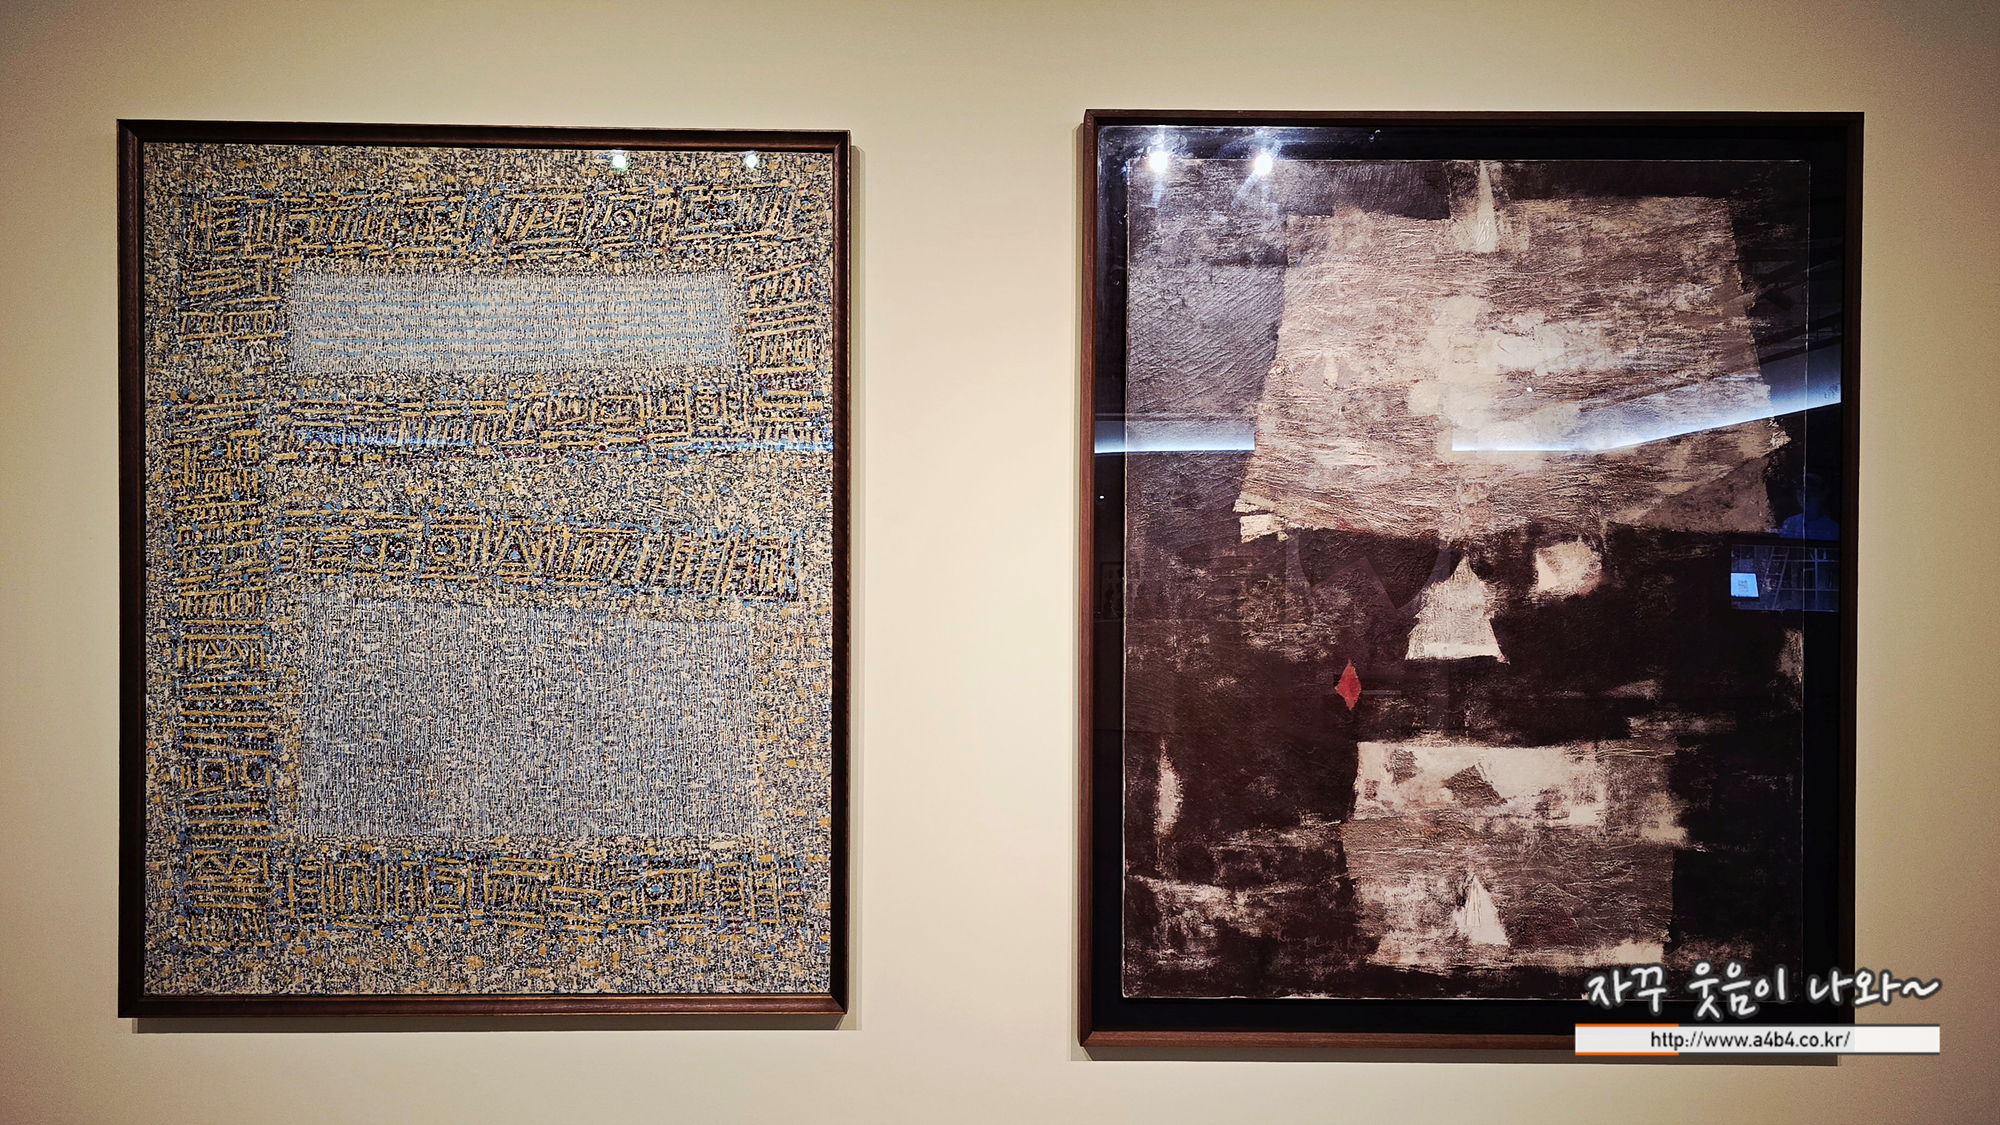 자꾸 웃음이 나와~
http://www.a4b4.co.kr/